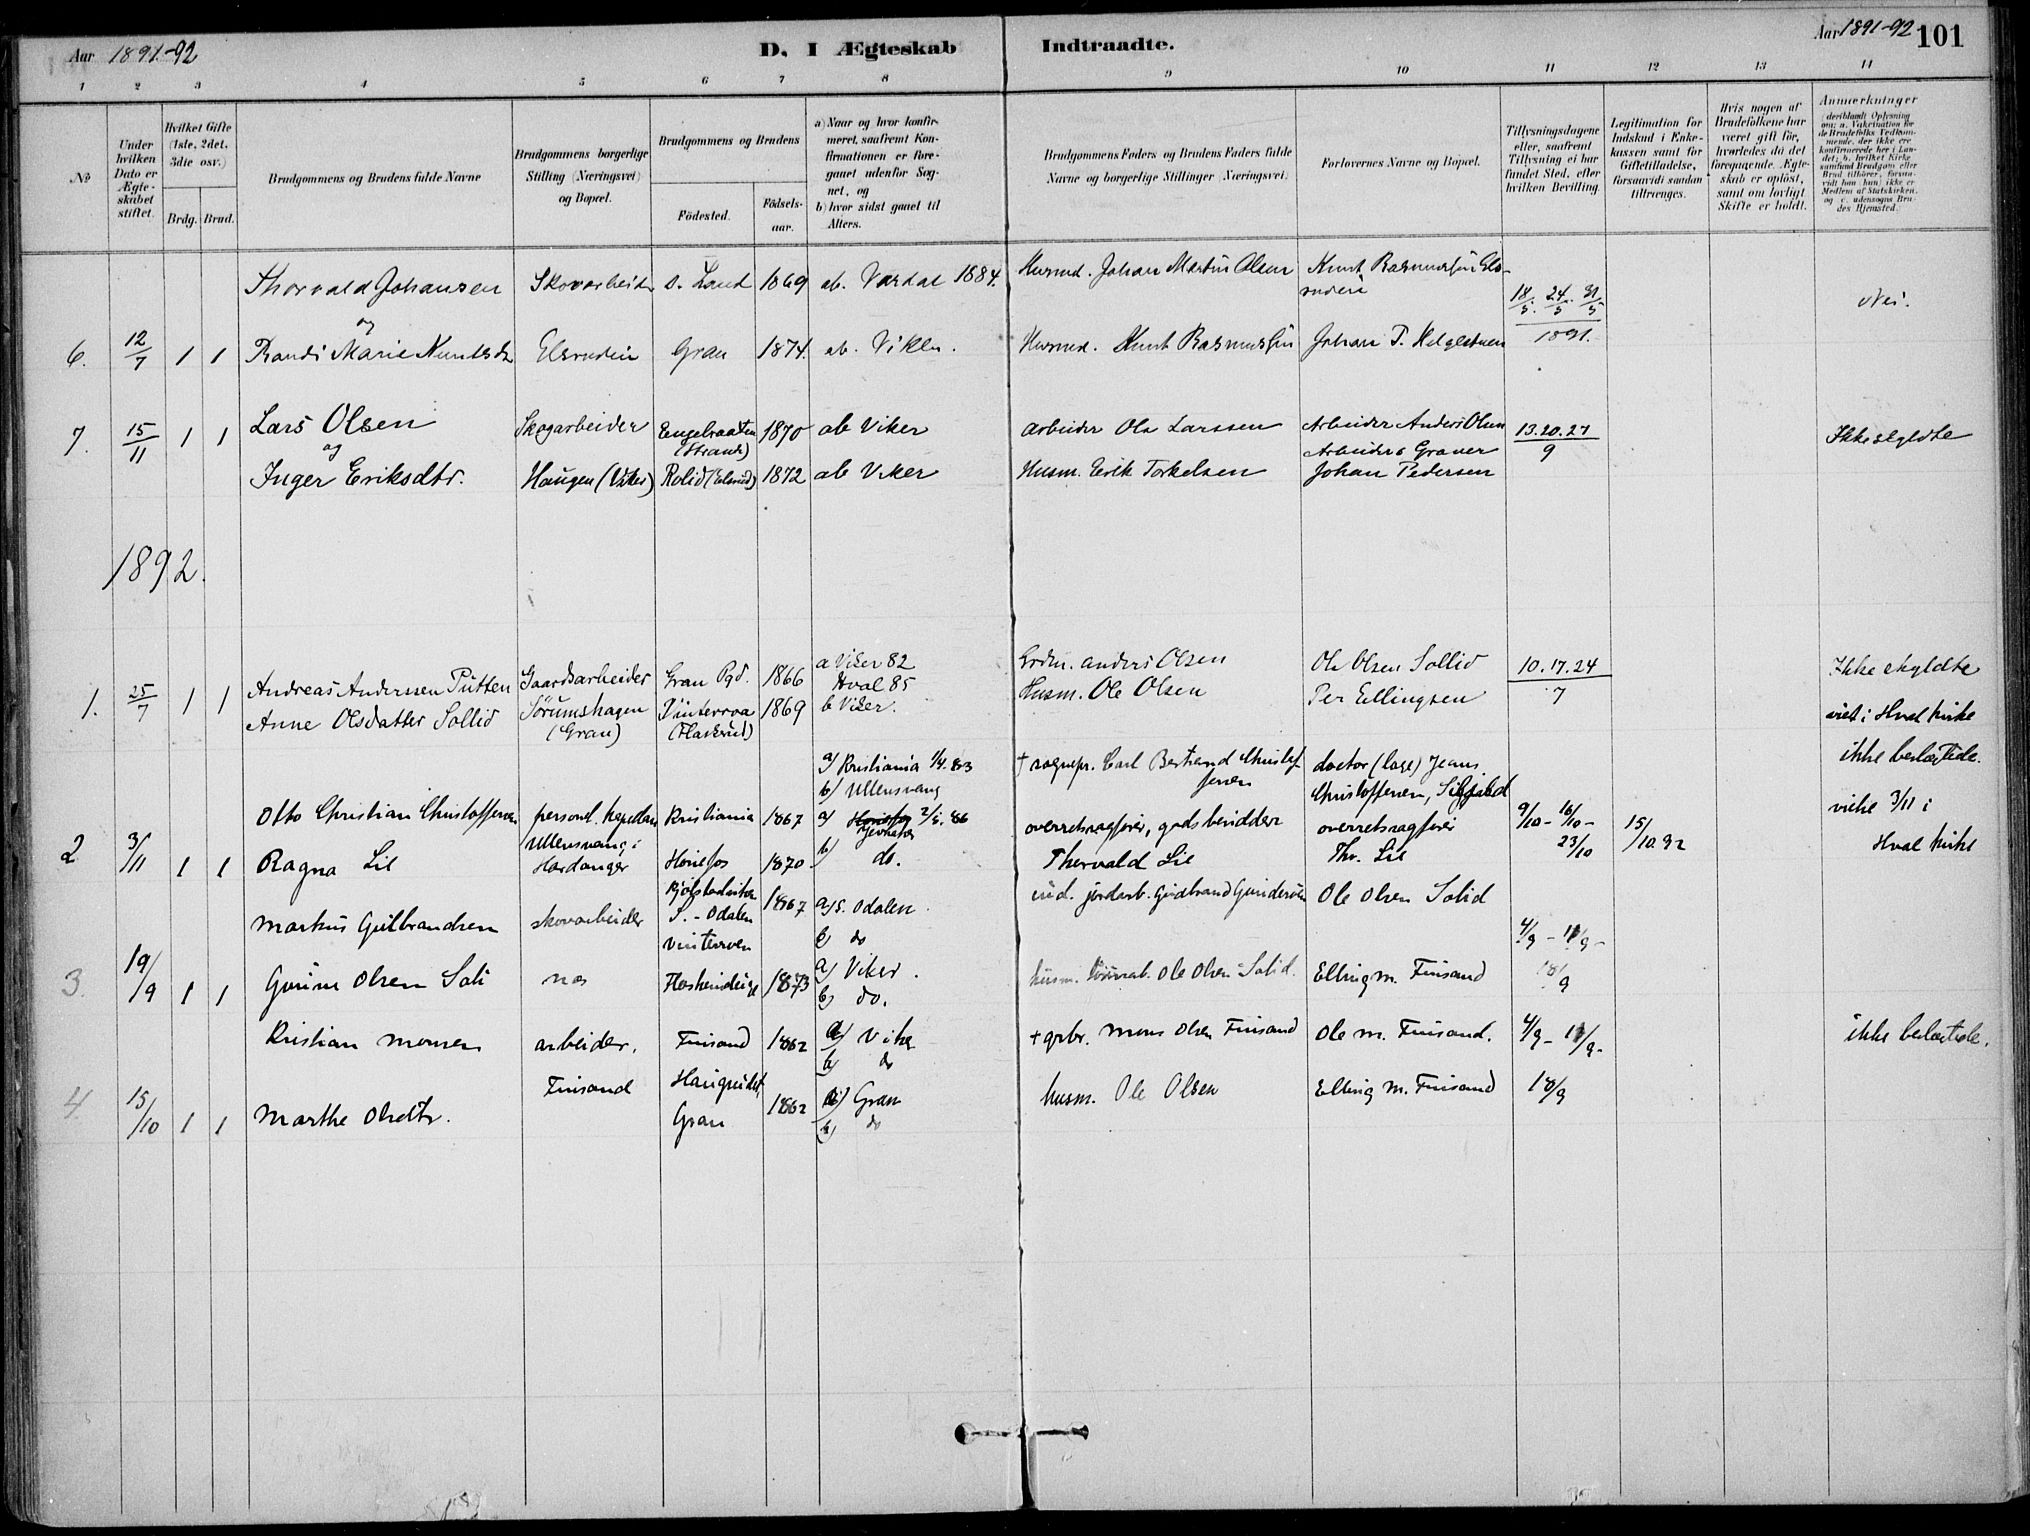 Aar 1891-92
D. I Ægteskab Indtraadte.
Aar 1891-92 101
1 2 3 4 5 6 7 8 9 10 11 12 13 14
№
Under hvilken Dato er Ægteskabet stiftet.
Hvilket Gifte (1ste, 2det, 3die osv.)
Brdg. Brud.
Brudgommens og Brudens fulde Navne
Brudgommens borgerlige Stilling (Næringsvei) og Bopæl.
Brudgommens og Brudens
Fødested.
Fødselsaar.
a) Naar og hvor konfirmeret, saafremt Konfirmationen er foregaaet udenfor Sognet, og
b) hvor sidst gaaet til Alters.
Brudgommens Faders og Brudens Faders fulde Navne og borgerlige Stillinger (Næringsvei).
Forlovernes Navne og Bopæl.
Tillysningsdagene eller, saafremt Tillysning ei har fundet Sted, efter hvilken Bevilling.
Legitimation for Indskud i Enkekassen samt for Giftetilladelse, forsaavidt saadan tiltrænges.
Hvis nogen af Brudefolkene har været gift før, hvorledes da det foregaaende Ægteskab er opløst, samt om lovligt Skifte er holdt.
Anmerkninger (deriblandt Oplysning om: a. Vakcination for de Brudefolks Vedkommende, der ikke ere konfirmerede her i Landet; b. hvilket Kirkesamfund Brudgom eller Brud tilhører, forsaavidt han (hun) ikke er Medlem af Statskirken, og c. udensogns Brudes Hjemsted.)
Thorvald Johansen Skovarbeider S. Land 1869 ab. Vardal 1884. Husmd. Johan Martin Olsen Knut Rasmussen Elsrudeie 18/5. 24/5. 31/5 Nei.
og
6. 12/7 1 1 Randi Marie Knutsdtr Elsrudeie Gran 1874. ab. Viker. Husmd. Knut Rasmussen Johan P. Helgestuen 1891.
Lars Olsen Skogarbeider 1870 ab Viker Arbeider Ole Larssen Arbeider Anders Olsen 13.20.27
7. 15/11 1 1 og (Strande) Arbeider Graver 9 Ikke skyldte
Inger Eriksdtr. Haugen (Viker) Rolid (Elsrud) 1872 ab Viker Husm. Erik Torkelsen Johan Pedersen
1892.
Andreas Anderssen Putten Gaardsarbeider Gran Pgd. 1866 a Viker 82 Hval 85 Anders Olsen Ole Olsen Sollid 10.17.24 Ikke skyldte
1. 25/7 1 1 Anne Olsdatter Sollid Sørumshagen (Gran) 1869 b Viker. Husm. Ole Olsen Per Ellingsen 7
viet i Hval kirke
Otto Christian Christoffersen personel kapellan Kristiania 1867 a) Kristiania 1/4. 83 b) Ullensvang † sognepr. Carl Bertrand Christoffersen doctor (læge) Jens Christoffersen, 9/10 - 16/10 - 15/10.92 ikke beslægtede.
Ullensvang i
2 3/11 1 1 Ragna Lie Hardanger Hønefos 1870 a) Jevnaker 2/5. 86 b) do. overretssagfører, godsbesidder Thorvald Lie overretssagfører Thv. Lie 23/10 viede 3/11 i Hval kirke
Markus Gulbrandsen skovarbeider S.-Odalen 1867 a) S. Odalen b) do Gudbrand Gundersen Ole Olsen Solid 4/9 - 11/9 -
3. 19/9 1 1 Olsen Soli 1873 a) Viker. b) do. husm. Ole Olsen Solid. Elling M. Finsand 18/9
Kristian Monsen arbeider. Finsand 1862 a) Viker b) do + grbr. Mons Olsen Finsand Ole M. Finsand. 4/9 - 11/9 - ikke beslægtede.
4. 15/10 1 1 Marthe Olsdtr. Finsand Gran 1862 a) Gran b) do husm. Ole Olsen Elling M. Finsand 18/9